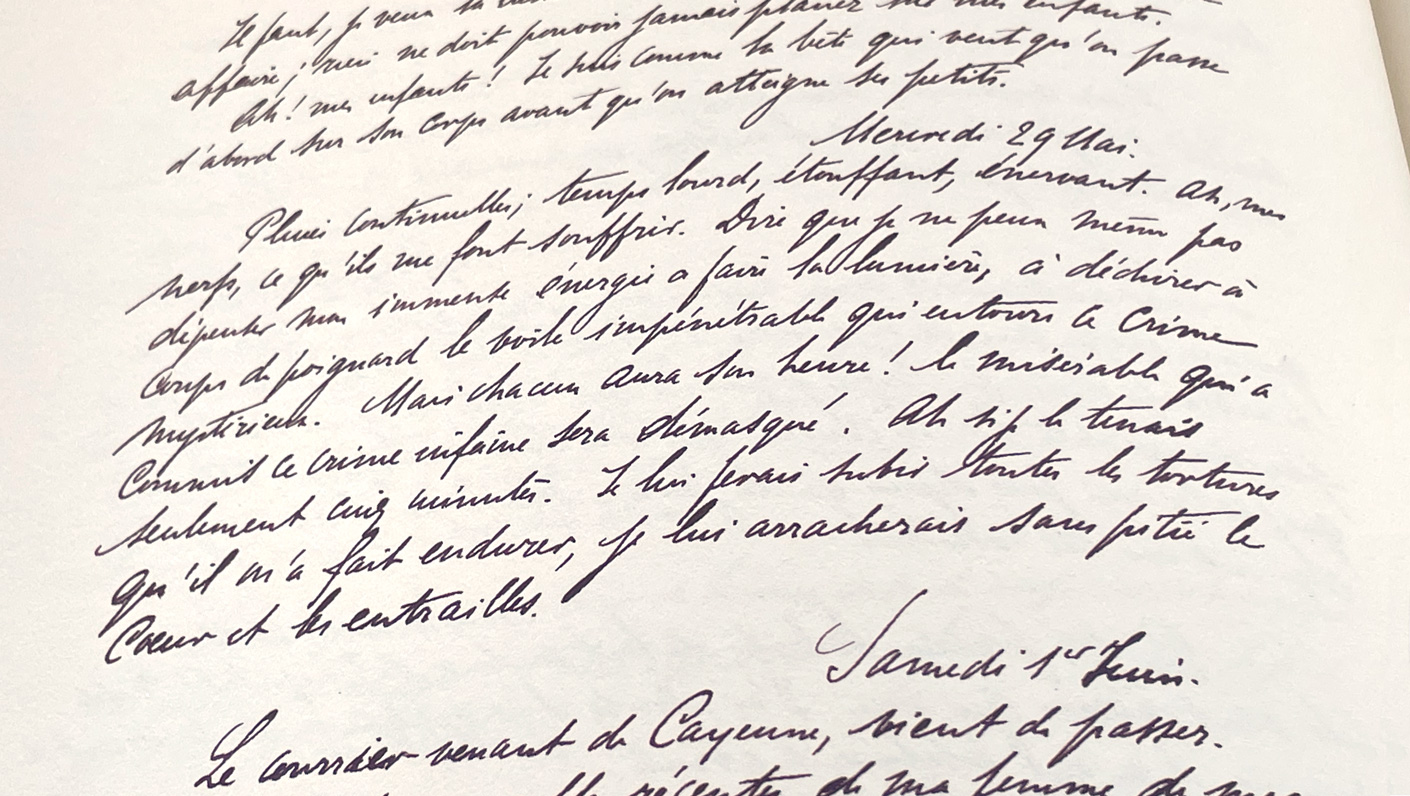 Il faut, je veux la
affaire; rien ne doit pouvoir jamais planer sur mes enfants.
Ah! mes enfants! Je suis comme la bête qui veut qu'on passe
d'abord sur son corps avant qu'on atteigne ses petits.
Mercredi 29 Mai.
Pluies continuelles; temps lourd, étouffant, énervant. Ah, mes
nerfs, ce qu'ils me font souffrir. Dire que je ne peux même pas
dépenser mon immense énergie a faire la lumière, à déchirer à
coups de poignard le voile impénétrable qui entoure ce crime
mystérieux. Mais chacun aura son heure! le misérable qui a
commis ce crime infâme sera démasqué. Ah si je le tenais
seulement cinq minutes. Je lui ferais subir toutes les tortures
qu'il m'a fait endurer, je lui arracherais sans pitié le
Cœur et les entrailles.
Samedi 1er Juin.
Le courrier venant de Cayenne, vient de passer.
récentes de ma femme, de mes